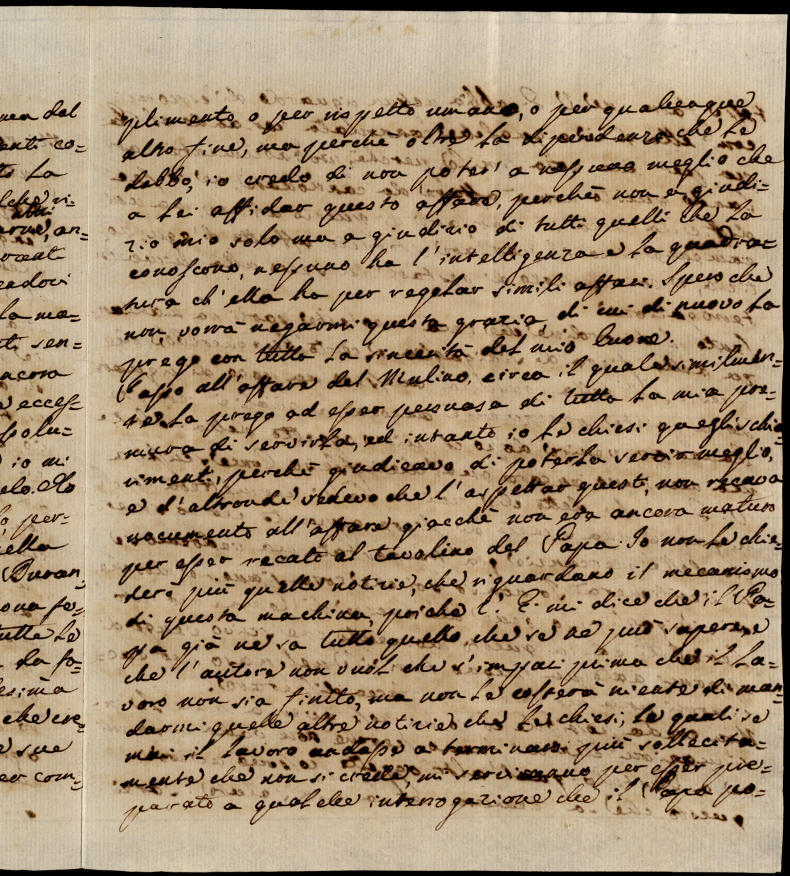 mea del
enti co=
to la
lche ri=
altri
arne, an=
ocat
eadoci
la ma=
ti sen=
ncora
e ecces=
spolu=
io mi
elo. Ho
o, per=
uella
Duran=
ona fe=
tutte le
la fa=
lesima
che cre=
e sue
er com=
plimento o per rispetto umano, o per qualunque
altro fine, ma perchè oltre la dipendenza che Le
debbo, io credo di non poter a nessuna meglio che
a Lei affidar questo affare, perchè non è giudi=
zio mio solo ma è giudizio di tutti quelli che La
conoscono, nessuno ha l'intelligenza e la quadra=
tura ch'ella ha per regolar simili affari. Spero che
non vorrà negarmi questa grazia, di cui di nuovo La
prego con tutta la sincerità del mio Cuore.
Passo all'affare del Mulino, circa il quale similmen=
te La prego ad esser persuasa di tutta la mia pre=
mura di servirla, ed intanto io Le chiesi quegli schia
rimenti, perchè giudicavo di poterla servir meglio,
e d'altronde vedevo che l'aspettar questi, non recava
nocumento all'affare giacchè non era ancora maturo
per esser recato al tavolino del Papa. Io non Le chie=
derò più quelle notizie, che riguardano il mecanismo
di questa machina, poichè l'E. mi dice che il Pa=
pa già ne sa tutto quello, che se ne può sapere, e
che l'autore non vuol che s'impari prima che il la=
voro non sia finito, ma non Le costerà niente di man=
darmi quelle altre notizie che Le chiesi, le quali se
mai il lavoro andasse a terminarsi più sollecita=
mente che non si crede, mi serviranno per esser pre=
parato a qualche interrogazione che il Papa po=